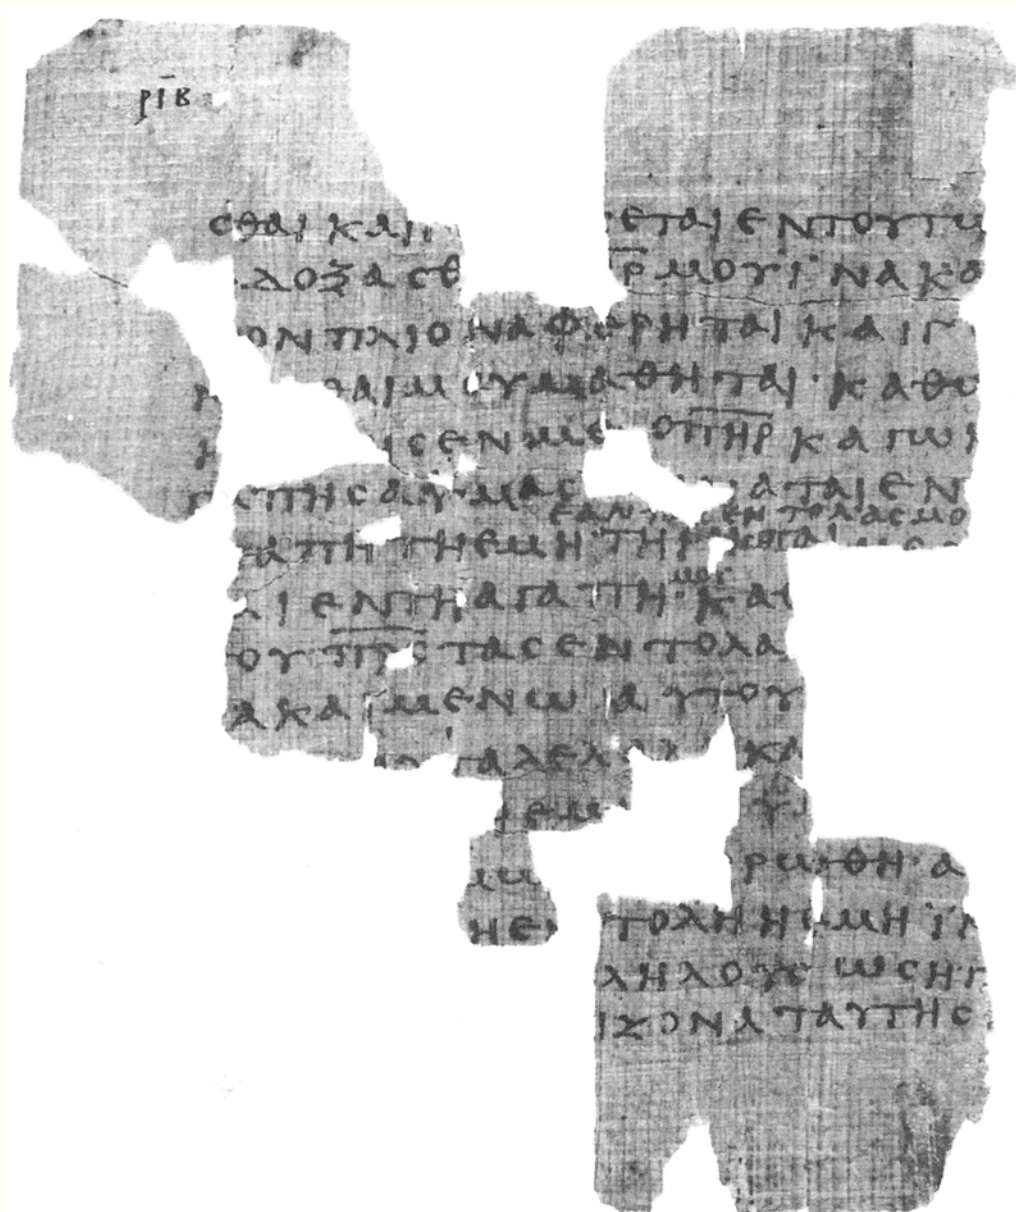 ριβ
σθαι και εται εν τουτω
δοξασθ πρ μου ϊνα κα
ον πλιονα φερηται και γ
θαι μου μαθηται· καθω
ισεν με ο πηρ καγω
απησα υμας αται εν
εαν τας εντολας μο
απη τη εμη τηρησηται
αι εν τη αγαπη· μου κα
ου πρς τας εντολα
α κα μενω αυτου
ταλελ κα
εμ υ
ρωθη· α
η εν τολη η εμη ϊν
ληλους ως ηγ
ιζονα ταυτης